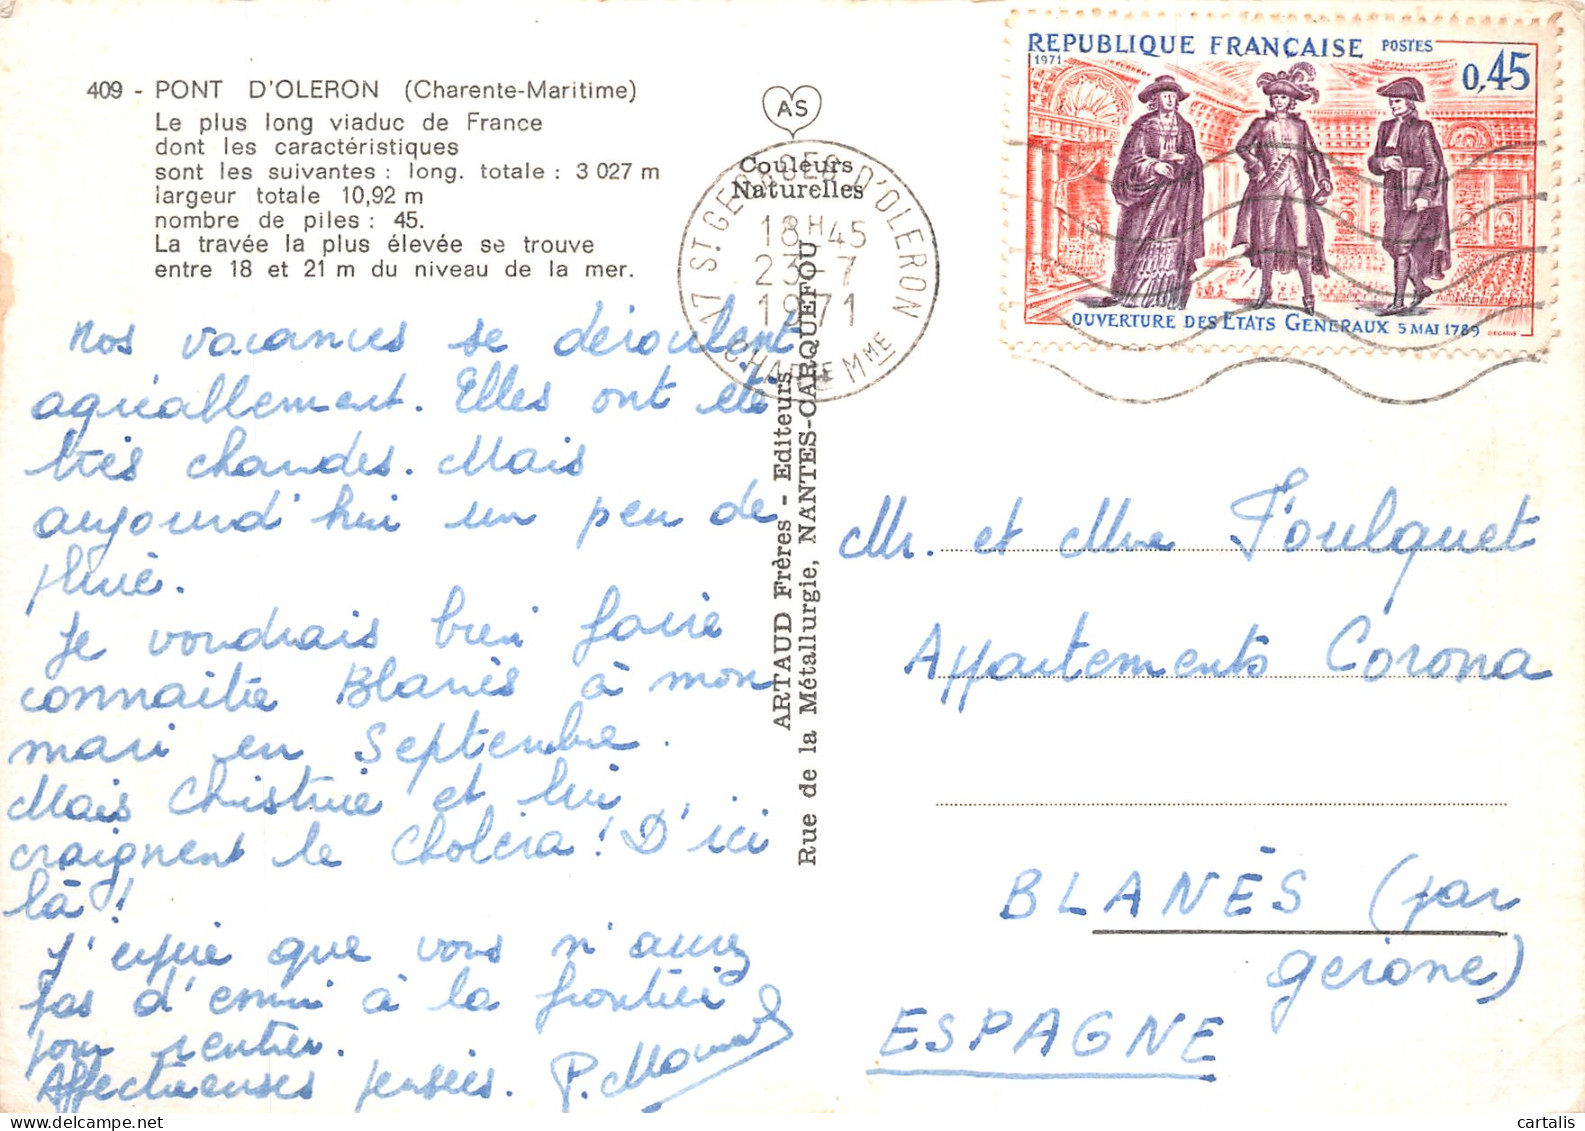 409 - PONT D'OLERON (Charente-Maritime)
Le plus long viaduc de France
dont les caractéristiques
sont les suivantes : long. totale : 3 027 m
largeur totale 10,92 m
nombre de piles : 45.
La travée la plus élevée se trouve
entre 18 et 21 m du niveau de la mer.
Nos vacances se déroulent
agréablement. Elles ont été
très chaudes. Mais
aujourd'hui un peu de
pluie.
Je voudrais bien faire
connaître Blanès à mon
mari en Septembre.
Mais Christine et lui
craignent le choléra ! D'ici
là !
J'espère que vous n'aurez
pas d'ennui à la frontière
pour rentrer.
Affectueuses pensées. P.
AS
Couleurs
Naturelles
17 ST GEORGES D'OLERON
18H45
23-7
1971
CHARTE MME
ARTAUD Frères - Editeurs
Rue de la Métallurgie, NANTES-CARQUEFOU
REPUBLIQUE FRANÇAISE POSTES
1971
0,45
OUVERTURE DES ETATS GENERAUX 5 MAI 1789
DECARIS
Mr. et Mme Foulquet
Appartements Corona
BLANÈS (par
gerone)
ESPAGNE
cartalis